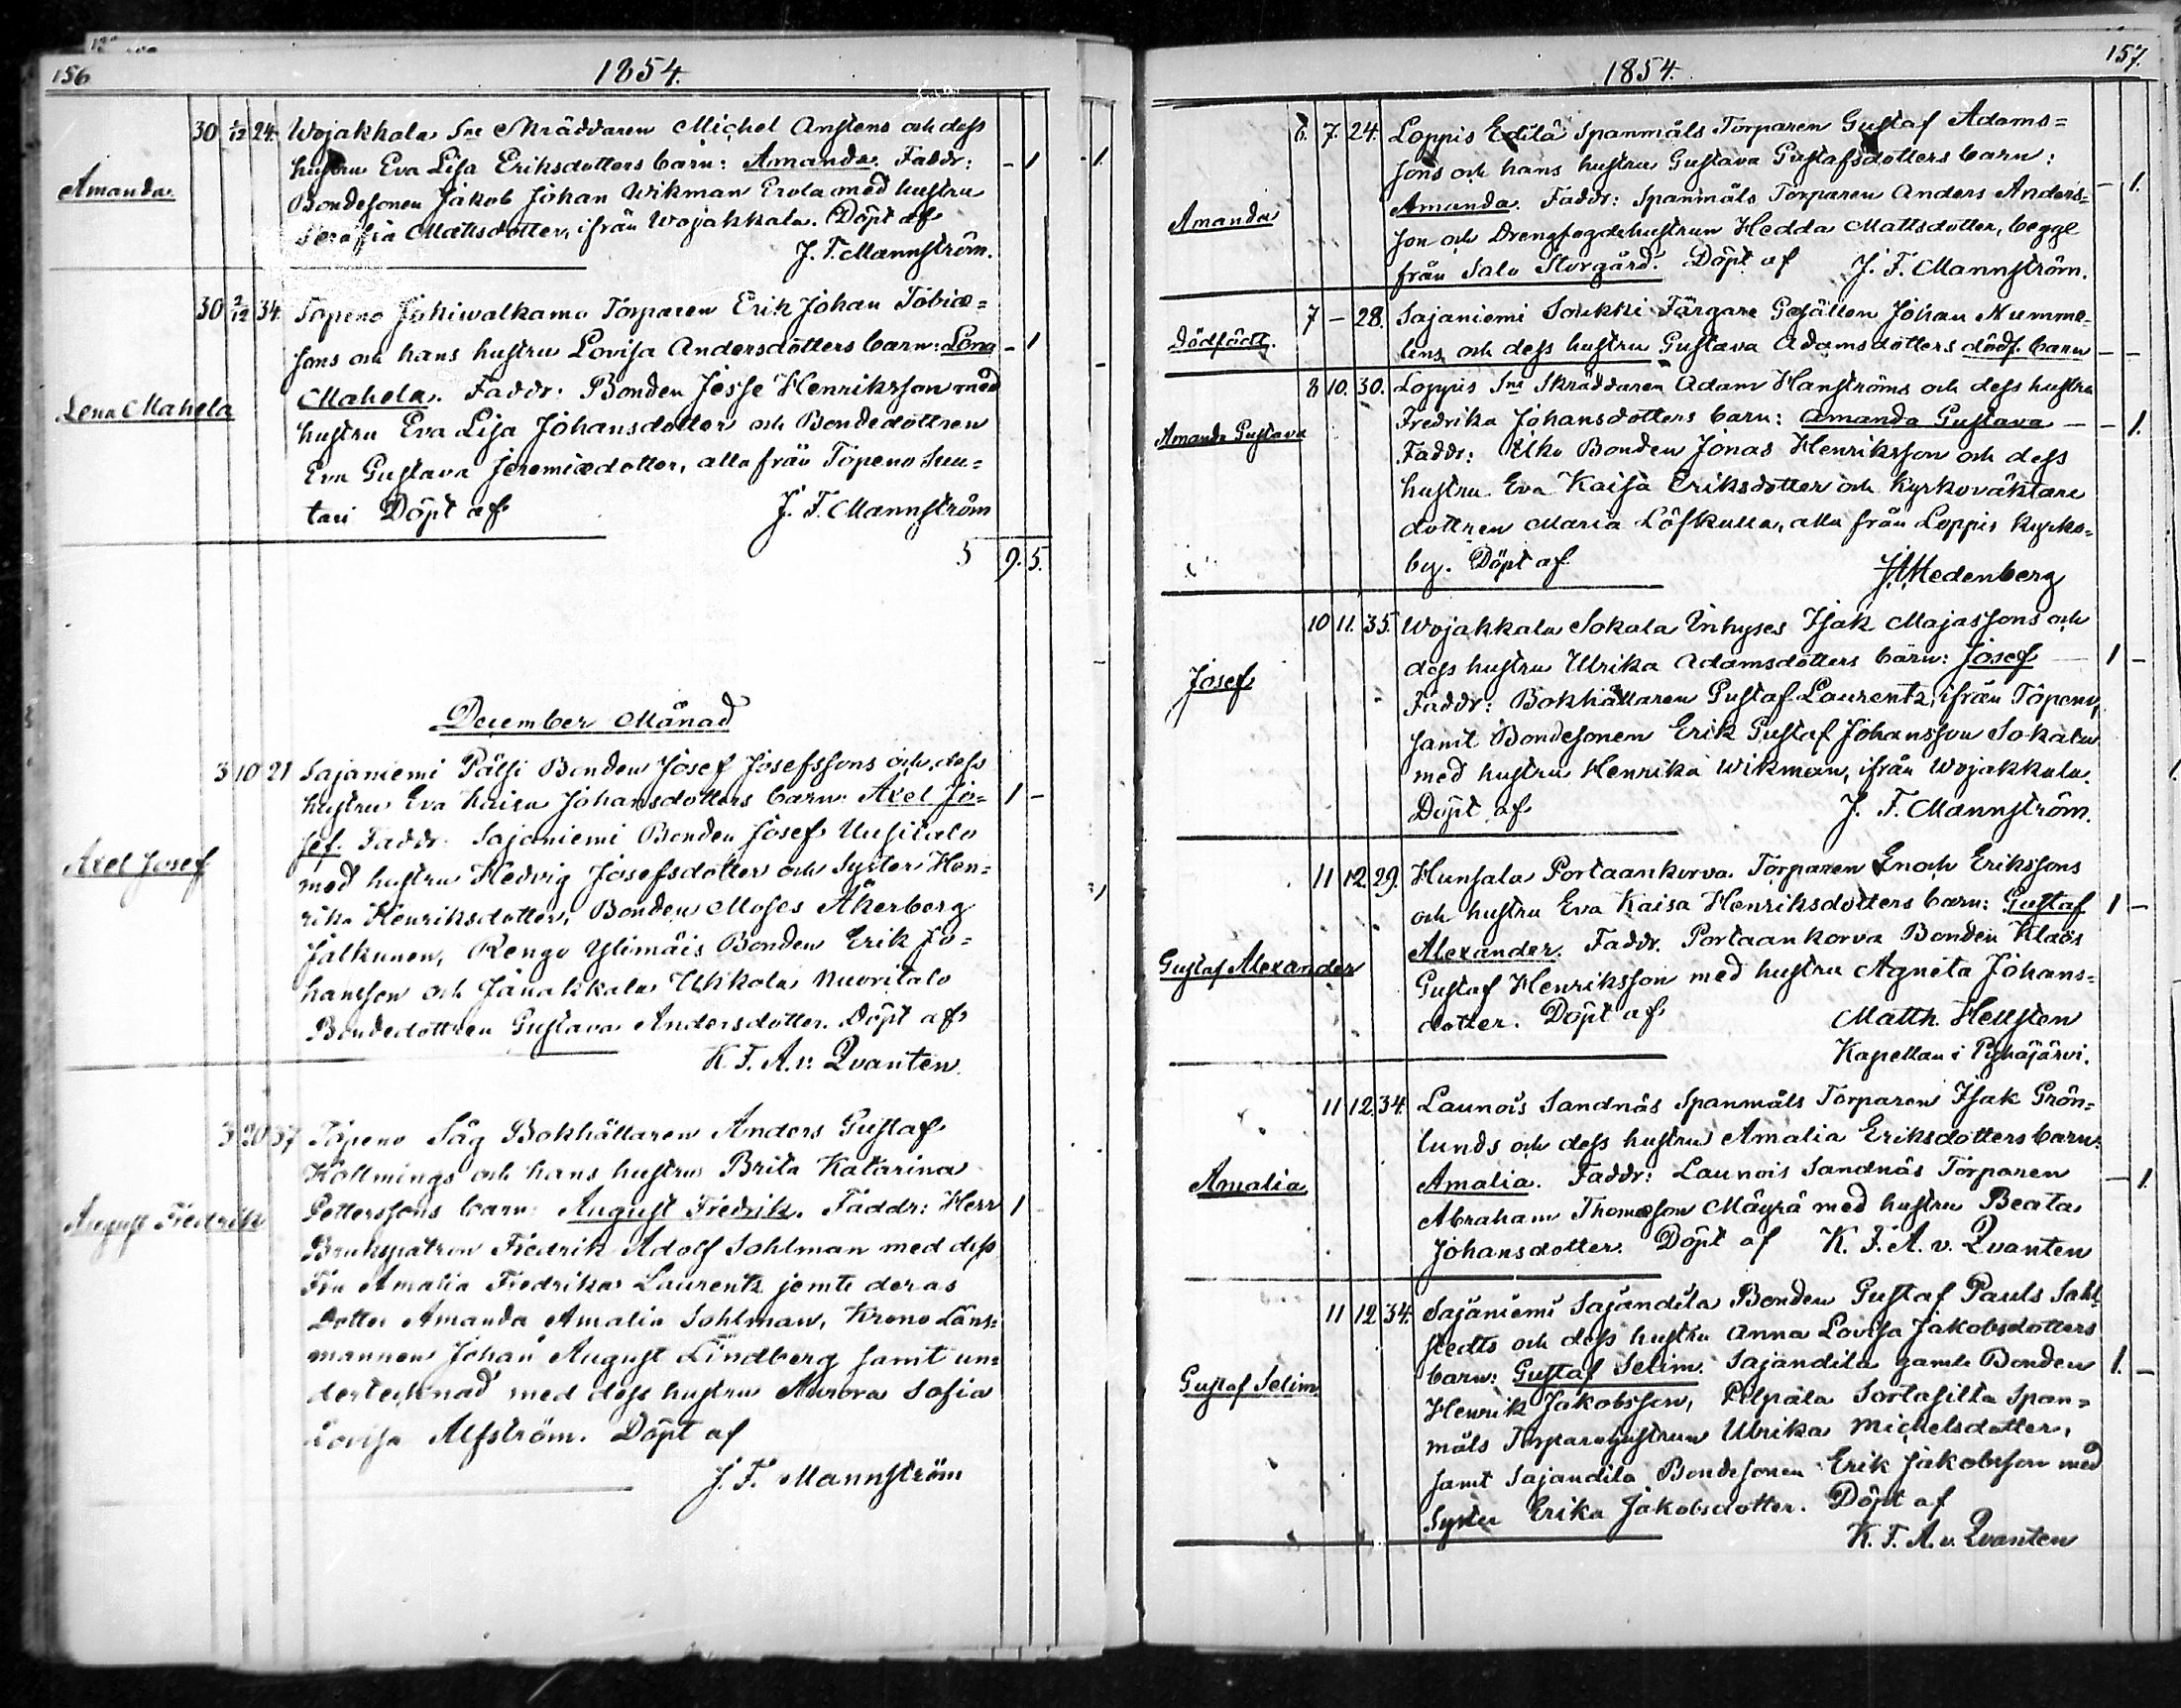 156
1854.
Amanda
30 2/12 24. Wojakkala Sne Skräddaren Michel Anstens och dess
hustru Eva Lisa Eriksdotters barn: Amanda. Faddr: - 1
Bondesonen Jakob Johan Wikman Erola med hustru
Serafia Mattsdotter, ifrån Wojakkala. Döpt af
J. F. Mannström.
Lena Mahela
30 2/12 34. Topeno Johiwalkama Torparen Erik Johan Tobiæ=
sons och hans hustru Lovisa Andersdotters barn: Lena - 1
Mahela. Faddr: Bonden Jesse Henriksson med
hustru Eva Lisa Johansdotter och Bondedottren
Eva Gustava Jeremiædotter, alla från Topeno Suu=
tari Döpt af J. F. Mannström
5 9. 5.
December Månad
Axel Josef
3 10 21 Sajaniemi Pälsi Bonden Josef Josefssons och dess
hustru Eva Kaisa Johansdotters barn: Axel Jo= 1 -
sef. Faddr. Sajaniemi Bonden Josef Uusitalo
med hustru Hedvig Josefsdotter och Syster Hen=
rika Henriksdotter, Bonden Moses Åkerberg
Jalkunen, Rengo Ylimäis Bonden Erik Jo=
hansson och Janakkala Uhkola Nuoritalo
Bondedottren Gustava Andersdotter. Döpt af
K. F. A. v. Qvanten.
August Fredrik
3 20 37 Topeno Såg Bokhållaren Anders Gustaf
Kollmings och hans hustru Brita Katarina
Petterssons barn: August Fredrik. Faddr: Herr 1 -
Brukspatron Fredrik Adolf Sohlman med dess
Fru Amalia Fredrika Laurentz jemte deras
Dotter Amanda Amalia Sohlman, Krono Läns=
mannen Johan August Lindberg samt un=
dertecknad med dess hustru Aurora Sofia
Lovisa Alfström. Döpt af
J. F. Mannström
157.
1854.
Amanda
6. 7. 24. Loppis Edilä Spanmåls Torparen Gustaf Adams=
sons och hans hustru Gustava Gustafsdotters barn:
Amanda. Faddr: Spanmåls Torparen Anders Anders= - 1.
son och Drengfogdehustrun Hedda Mattsdotter, begge
från Salo Storgård. Döpt af J. F. Mannström.
Dödfödt.
7 - 28. Sajaniemi Soukki Färgare Gesällen Johan Numme=
lins och dess hustru Gustava Adamsdotters dödf. barn - -
Amanda Gustava
8 10. 30. Loppis Sne Skräddaren Adam Hanströms och dess hustru
Fredrika Johansdotters barn: Amanda Gustava - - 1.
Faddr: Elko Bonden Jonas Henriksson och dess
hustru Eva Kaisa Eriksdotter och Kyrkoväktare
dottren Maria Löfkulla, alla från Loppis Kyrko=
by. Döpt af
Hedenberg
Josef
10 11. 35. Wojakkala Sokala Inhyses Isak Majassons och
dess hustru Ulrika Adamsdotters barn: Josef 1 -
Faddr: Bokhållaren Gustaf Laurentz, ifrån Topeno,
samt Bondesonen Erik Gustaf Johansson Sokala
med hustru Henrika Wikman, ifrån Wojakkala.
Döpt af J. F. Mannström.
Gustaf Alexander
11 12. 29. Hunsala Portaankorva Torparen Enoch Erikssons
och hustru Eva Kaisa Henriksdotters barn: Gustaf 1 -
Alexander. Faddr. Portaankorva Bonden Klaës
Gustaf Henriksson med hustru Agneta Johans=
dotter. Döpt af Matth. Hellsten
Kapellan i Pyhäjärvi.
Amalia
11 12. 34. Launois Sandnäs Spanmåls Torparen Isak Grön=
lunds och dess hustru Amalia Eriksdotters barn:
Amalia. Faddr: Launois Sandnäs Torparen - 1.
Abraham Thomæson Mäyrä med hustru Beata
Johansdotter. Döpt af K. F. A. v. Qvanten
Gustaf Selim
11 12 34. Sajaniemi Sajandila Bonden Gustaf Pauls Sahl=
stedts och dess hustru Anna Lovisa Jakobsdotters
barn: Gustaf Selim. Sajandila gamle Bonden 1. -
Henrik Jakobsson, Pilpala Sortasilta Span=
måls Torparehustrun Ulrika Michelsdotter,
samt Sajandila Bondesonen Erik Jakobsson med
Syster Erika Jakobsdotter. Döpt af
K. F. A. v. Qvanten